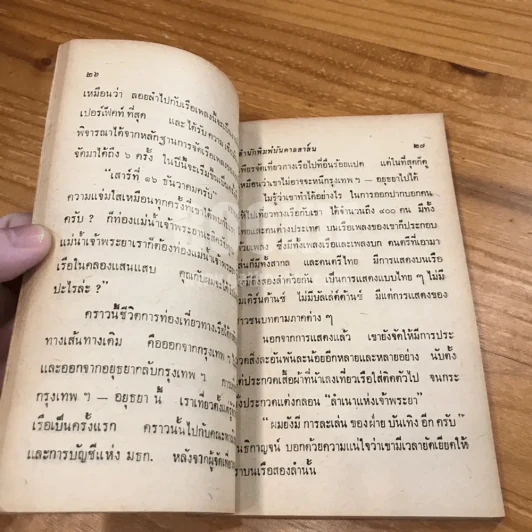 ๒๖
เหมือนว่า ลอยลำไปกับเรือเพลงนี้จะเป็น
เปอร์เฟ็คท์ ที่สุด และได้รับความ
พิจารณาได้จากหลักฐานการจัดเรือเพลง
จัดมาได้ถึง ๖ ครั้ง ในปีนี้จะเริ่มขึ้น
"เสาร์ที่ ๑๖ ธันวาคมครับ"
ความแจ่มใสเหมือนทุกครั้งที่เขาได้พบ
ครับ ? ก็ท่องแม่น้ำเจ้าพระยานะสิครับ
แม่น้ำเจ้าพระยาเราก็ต้องท่องแม่น้ำเจ้าพระ
เรือในคลองแสนแสบ คุณกับผมจะได้
ปะไรล่ะ ?"
คราวนี้ชีวิตการท่องเที่ยวทางเรือได้
ทางเส้นทางเดิม คือออกจากกรุงเทพ ฯ
และออกจากอยุธยากลับกรุงเทพ ฯ การ
กรุงเทพ ฯ — อยุธยา นี้ เราเที่ยวตั้งแต่
เรือเป็นครั้งแรก คราวนั้นไปกับคณะ
และการบัญชีแห่ง มธก. หลังจากผู้จัดเที่ยว
สำนักพิมพ์บันดาลสาส์น ๒๗
เพียรจัดเที่ยวทางเรือไปที่อื่นร้อยแปด แต่ในที่สุดก็ดู
เหมือนว่าเขาไม่อาจจะหนีกรุงเทพ ฯ — อยุธยาไปได้
ไม่รู้ว่าเขาทำได้อย่างไร ในการออกปากบอกคน
ให้ไปเที่ยวทางเรือกับเขา ได้จำนวนถึง ๔๐๐ คน มีทั้ง
ไทยและคนต่างประเทศ บนเรือเพลงของเขาก็ประกอบ
ด้วยเพลง ซึ่งมีทั้งเพลงเรือและเพลงบก ดนตรีที่เอามา
เล่นก็มีทั้งสากล และดนตรีไทย มีการแสดงบนเรือ
มีทั้งสองลำด้วยกัน เป็นการแสดงแบบไทย ๆ ไม่มี
โมเดิร์นด้านซ์ ไม่มีบัลเล่ต์ด้านซ์ มีแต่การแสดงของ
ชาวชนบทตามภาคต่าง ๆ
นอกจากการแสดงแล้ว เขายังจัดให้มีการประ
กวดสิ่งละอันพันละน้อยอีกหลายและหลายอย่าง นับตั้ง
แต่ประกวดเสื้อผ้าที่นำเลงเที่ยวเรือใส่ติดตัวไป จนกระ
ทั่งประกวดแต่งกลอน "ลำเนาแห่งเจ้าพระยา"
"ผมยังมี การละเล่น ของฝ่าย บันเทิง อีก ครับ"
นธิกาญจน์ บอกด้วยความแน่ใจว่าเขามีเวลายัดเยียดให้
เราบนเรือสองลำนั้น